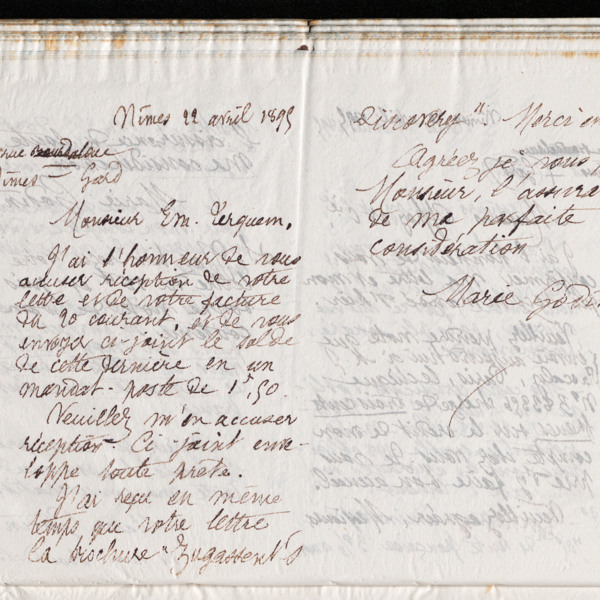 Nîmes 22 avril 1895
rue Bourdaloue
Nîmes - Gard
Monsieur Em. Terquem,
J'ai l'honneur de vous
accuser réception de votre
lettre et de votre facture
du 20 courant, et de vous
envoyer ci-joint le solde
de cette dernière en un
mandat-poste de 1f,50.
Veuillez m'en accuser
réception ci-joint enve-
loppe toute prête.
J'ai reçu en même
temps que votre lettre
la brochure "Zugassent's
discovery". Merci
Agréez je vous
Monsieur, l'assura
de ma parfaite
considération
Marie God